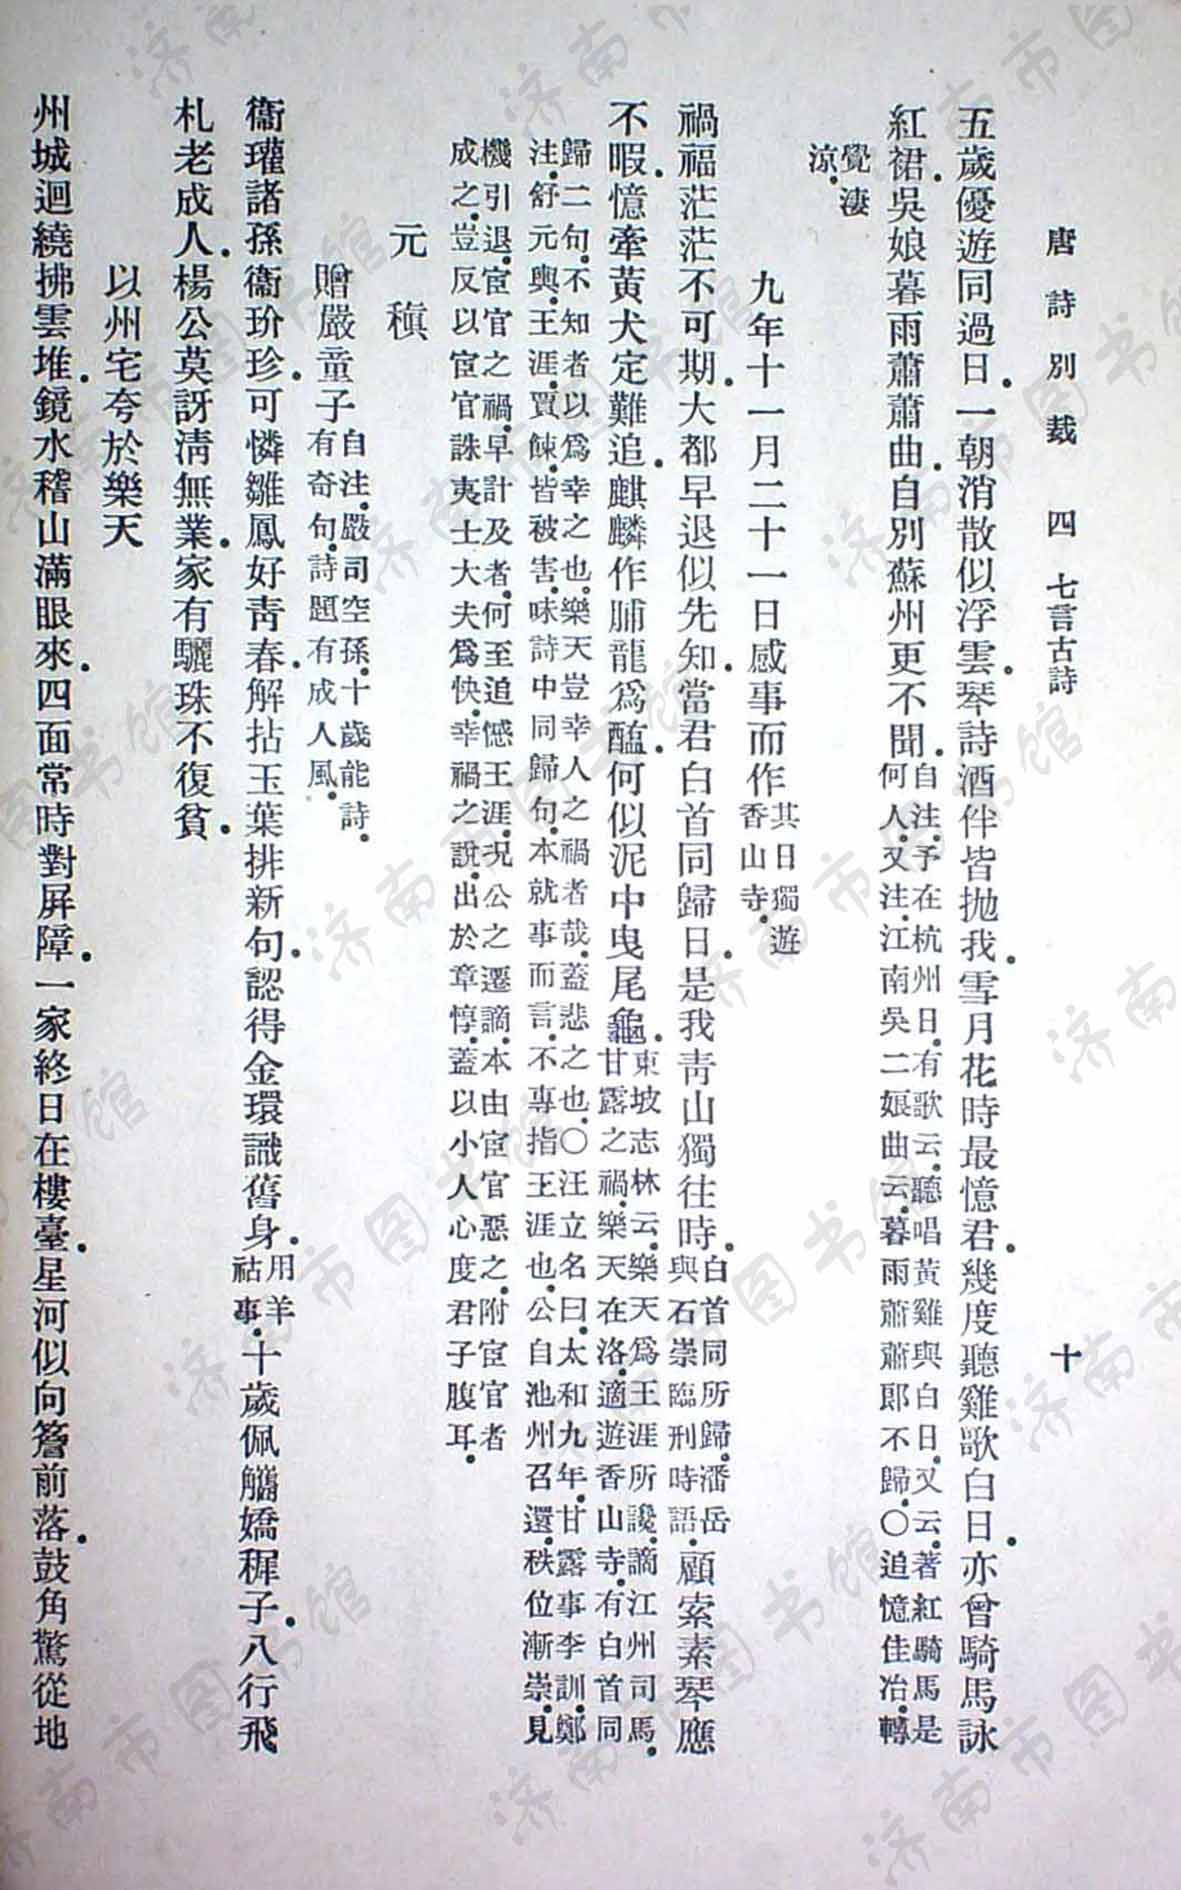 唐詩別裁　四　七言古詩　十
五歲優遊同過日.一朝消散似浮雲.琴詩酒伴皆抛我.雪月花時最憶君.幾度聽雞歌白日.亦曾騎馬詠
紅裙.吳娘暮雨蕭蕭曲.自別蘇州更不聞.
自注.予在杭州日.有歌云.聽唱黃雞與白日.又云.著紅騎馬是
何人.又注.江南吳二娘曲云.暮雨蕭蕭郎不歸.〇追憶佳冶.轉
覺淒
涼.
九年十一月二十一日感事而作
其日獨遊
香山寺.
禍福茫茫不可期.大都早退似先知.當君白首同歸日.是我靑山獨往時.
白首同所歸.潘岳
與石崇臨刑時語.
顧索素琴應
不暇.憶牽黃犬定難追.麒麟作脯龍爲醢.何似泥中曳尾龜.
東坡志林云.樂天爲王涯所讒.謫江州司馬.
甘露之禍.樂天在洛.適遊香山寺.有白首同
歸二句.不知者以爲幸之也.樂天豈幸人之禍者哉.蓋悲之也.〇汪立名曰.太和九年.甘露事李訓.鄭
注.舒元輿.王涯.賈餗.皆被害.味詩中同歸句.本就事而言.不專指王涯也.公自池州召還.秩位漸崇.見
機引退.宦官之禍.早計及者.何至追憾王涯.况公之遷謫.本由宦官惡之.附宦官者
成之.豈反以宦官誅夷士大夫爲快.幸禍之說.出於章惇.蓋以小人心度君子腹耳.
元　稹
贈嚴童子
自注.嚴司空孫.十歲能詩.
有奇句.詩題有成人風.
衞瓘諸孫衞玠珍.可憐雛鳳好靑春.解拈玉葉排新句.認得金環識舊身.
用羊
祜事.
十歲佩觿嬌穉子.八行飛
札老成人.楊公莫訝淸無業.家有驪珠不復貧.
以州宅夸於樂天
州城迴繞拂雲堆.鏡水稽山滿眼來.四面常時對屛障.一家終日在樓臺.星河似向簷前落.鼓角驚從地
济南市图书馆